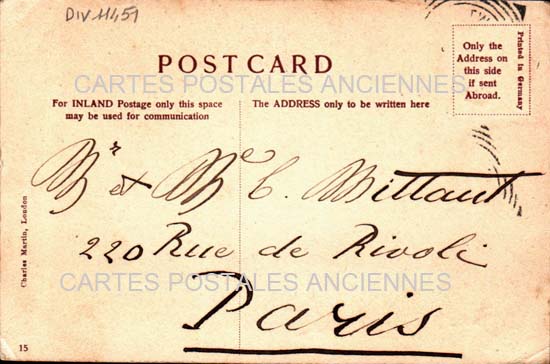 DIV 11451
POSTCARD
Only the
Address on
this side
if sent
Abroad.
Printed in Germany
CARTES POSTALES ANCIENNES
For INLAND Postage only this space
may be used for communication
The ADDRESS only to be written here
Mr et Me C. Mittant
220 Rue de Rivoli
CARTES POSTALES ANCIENNES
Paris
Charles Martin, London
15